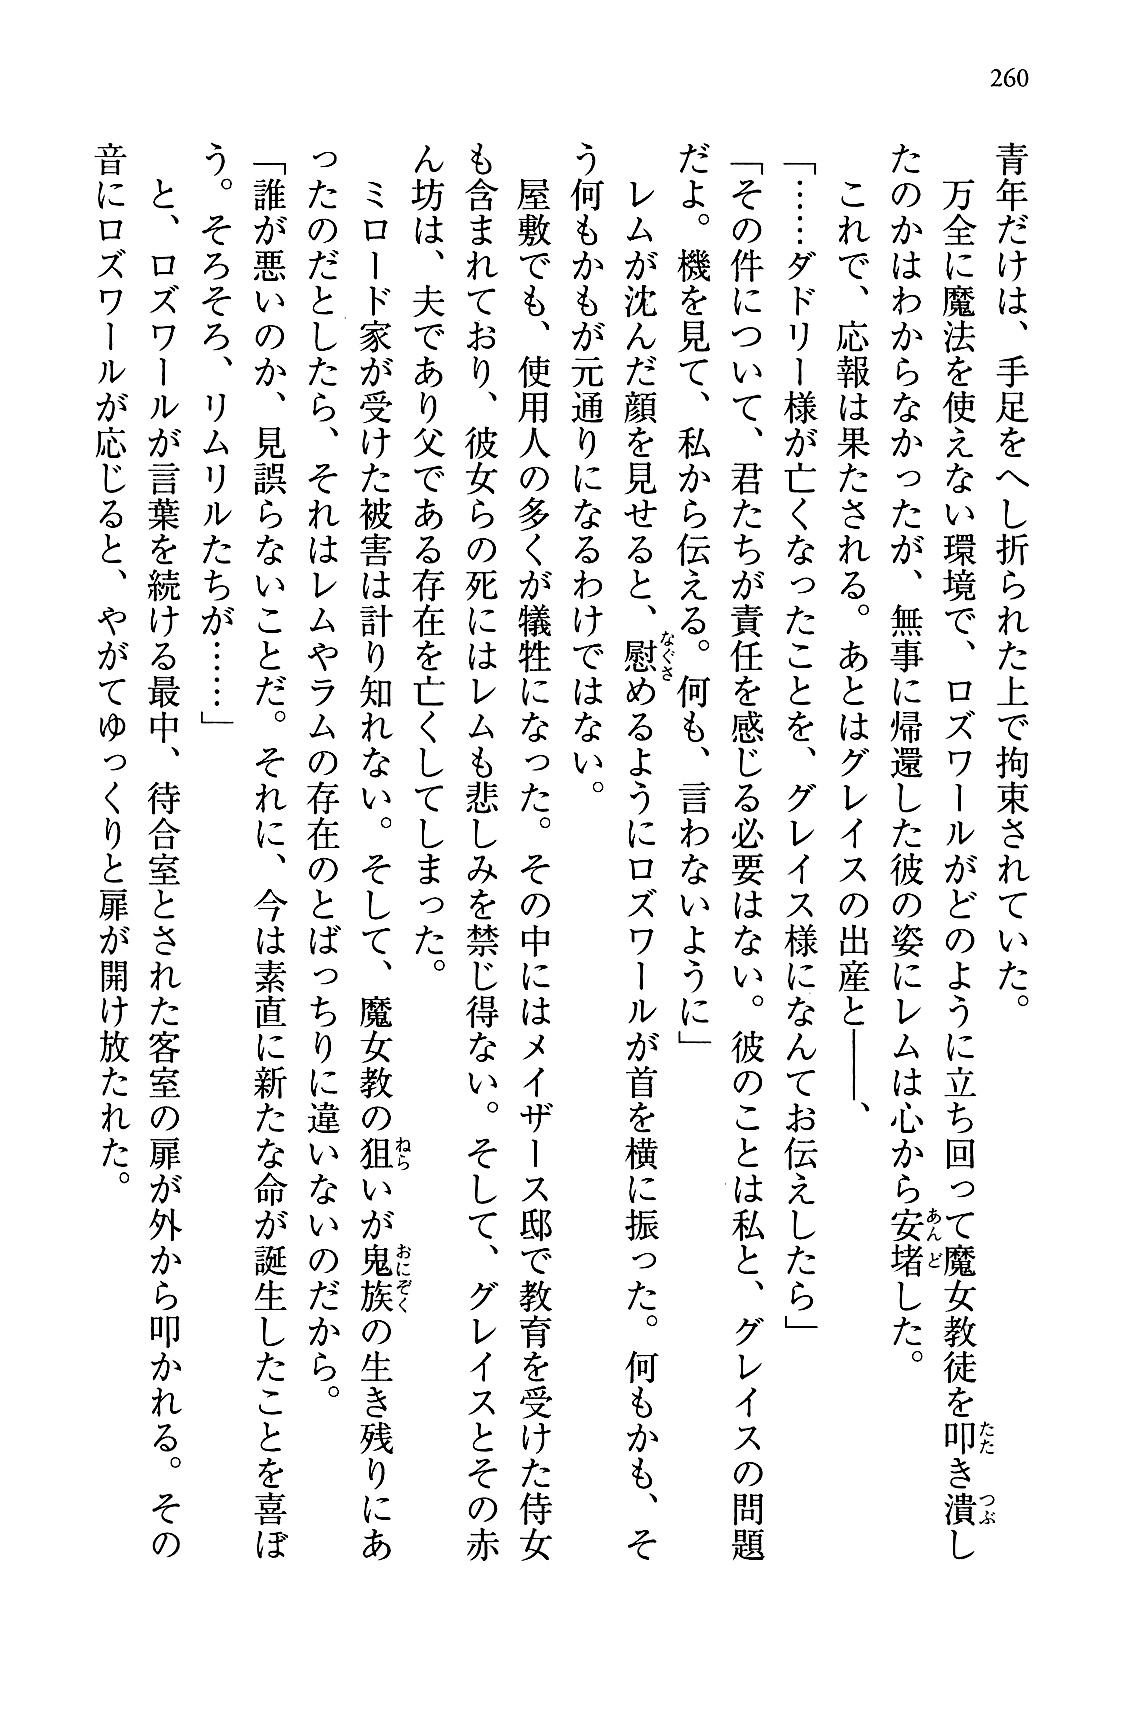 260
青年だけは、手足をへし折られた上で拘束されていた。
　万全に魔法を使えない環境で、ロズワールがどのように立ち回って魔女教徒を叩き潰し
たのかはわからなかったが、無事に帰還した彼の姿にレムは心から安堵した。
　これで、応報は果たされる。あとはグレイスの出産と――、
「……ダドリー様が亡くなったことを、グレイス様になんてお伝えしたら」
「その件について、君たちが責任を感じる必要はない。彼のことは私と、グレイスの問題
だよ。機を見て、私から伝える。何も、言わないように」
　レムが沈んだ顔を見せると、慰めるようにロズワールが首を横に振った。何もかも、そ
う何もかもが元通りになるわけではない。
　屋敷でも、使用人の多くが犠牲になった。その中にはメイザース邸で教育を受けた侍女
も含まれており、彼女らの死にはレムも悲しみを禁じ得ない。そして、グレイスとその赤
ん坊は、夫であり父である存在を亡くしてしまった。
　ミロード家が受けた被害は計り知れない。そして、魔女教の狙いが鬼族の生き残りにあ
ったのだとしたら、それはレムやラムの存在のとばっちりに違いないのだから。
「誰が悪いのか、見誤らないことだ。それに、今は素直に新たな命が誕生したことを喜ぼ
う。そろそろ、リムリルたちが……」
　と、ロズワールが言葉を続ける最中、待合室とされた客室の扉が外から叩かれる。その
音にロズワールが応じると、やがてゆっくりと扉が開け放たれた。